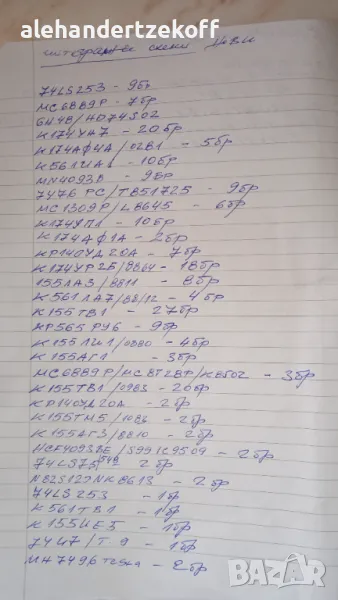 @ alehandertzekoff
интегрални схеми нови
74LS253 - 9бр
MC6889P - 7бр
/HD74S02
К174УА7 - 20бр
К174АФ4А /02В1 - 5бр
К561ЛА - 10бр
MN4093B - 9бр
7476 PC/TB51725 - 9бр
MC1309P/L8645 - 6бр
К174УП1 - 10бр
К174АФ1А - 2бр
КР140УД20А - 7бр
К174УР2Б/8864 - 18бр
155ЛА3 /8811 - 8бр
К561ЛА7/88/12 - 4бр
К155ТВ1 - 27бр
КР565РУ6 - 9бр
К155ЛИ1/0880 - 4бр
К155АГ1 - 3бр
MC6889P/MC8T28P/K8502 - 3бр
К155ТВ1 /0983 - 20бр
КР140УД20А - 2бр
К155ТМ5 /1088 - 2бр
К155АГ3/8810 - 2бр
HCF4093BE /S99129509 - 2бр
74LS75 2бр
N82S127NK8613 - 2бр
74LS253 - 1бр
К561ТВ1 - 1бр
К155ИЕ5 - 1бр
7447/T 9 - 1бр
MH7496 - 2бр
BAZAR
bg